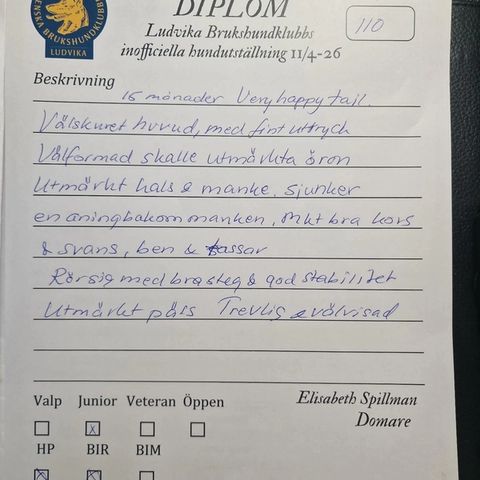 SVENSKA BRUKSHUNDKLUBBEN
LUDVIKA
DIPLOM
110
Ludvika Brukshundklubbs
inofficiella hundutställning 11/4-26
Beskrivning
15 månader Very happy tail.
Välskuret huvud, med fint uttryck
Välformad skalle utmärkta öron
Utmärkt hals & manke. sjunker
en aning bakom manken, Mkt bra kors
& svans, ben & tassar
Rörsig med bra steg & god stabilitet
Utmärkt päls Trevlig & välvisad
Valp Junior Veteran Öppen
Elisabeth Spillman
Domare
HP BIR BIM